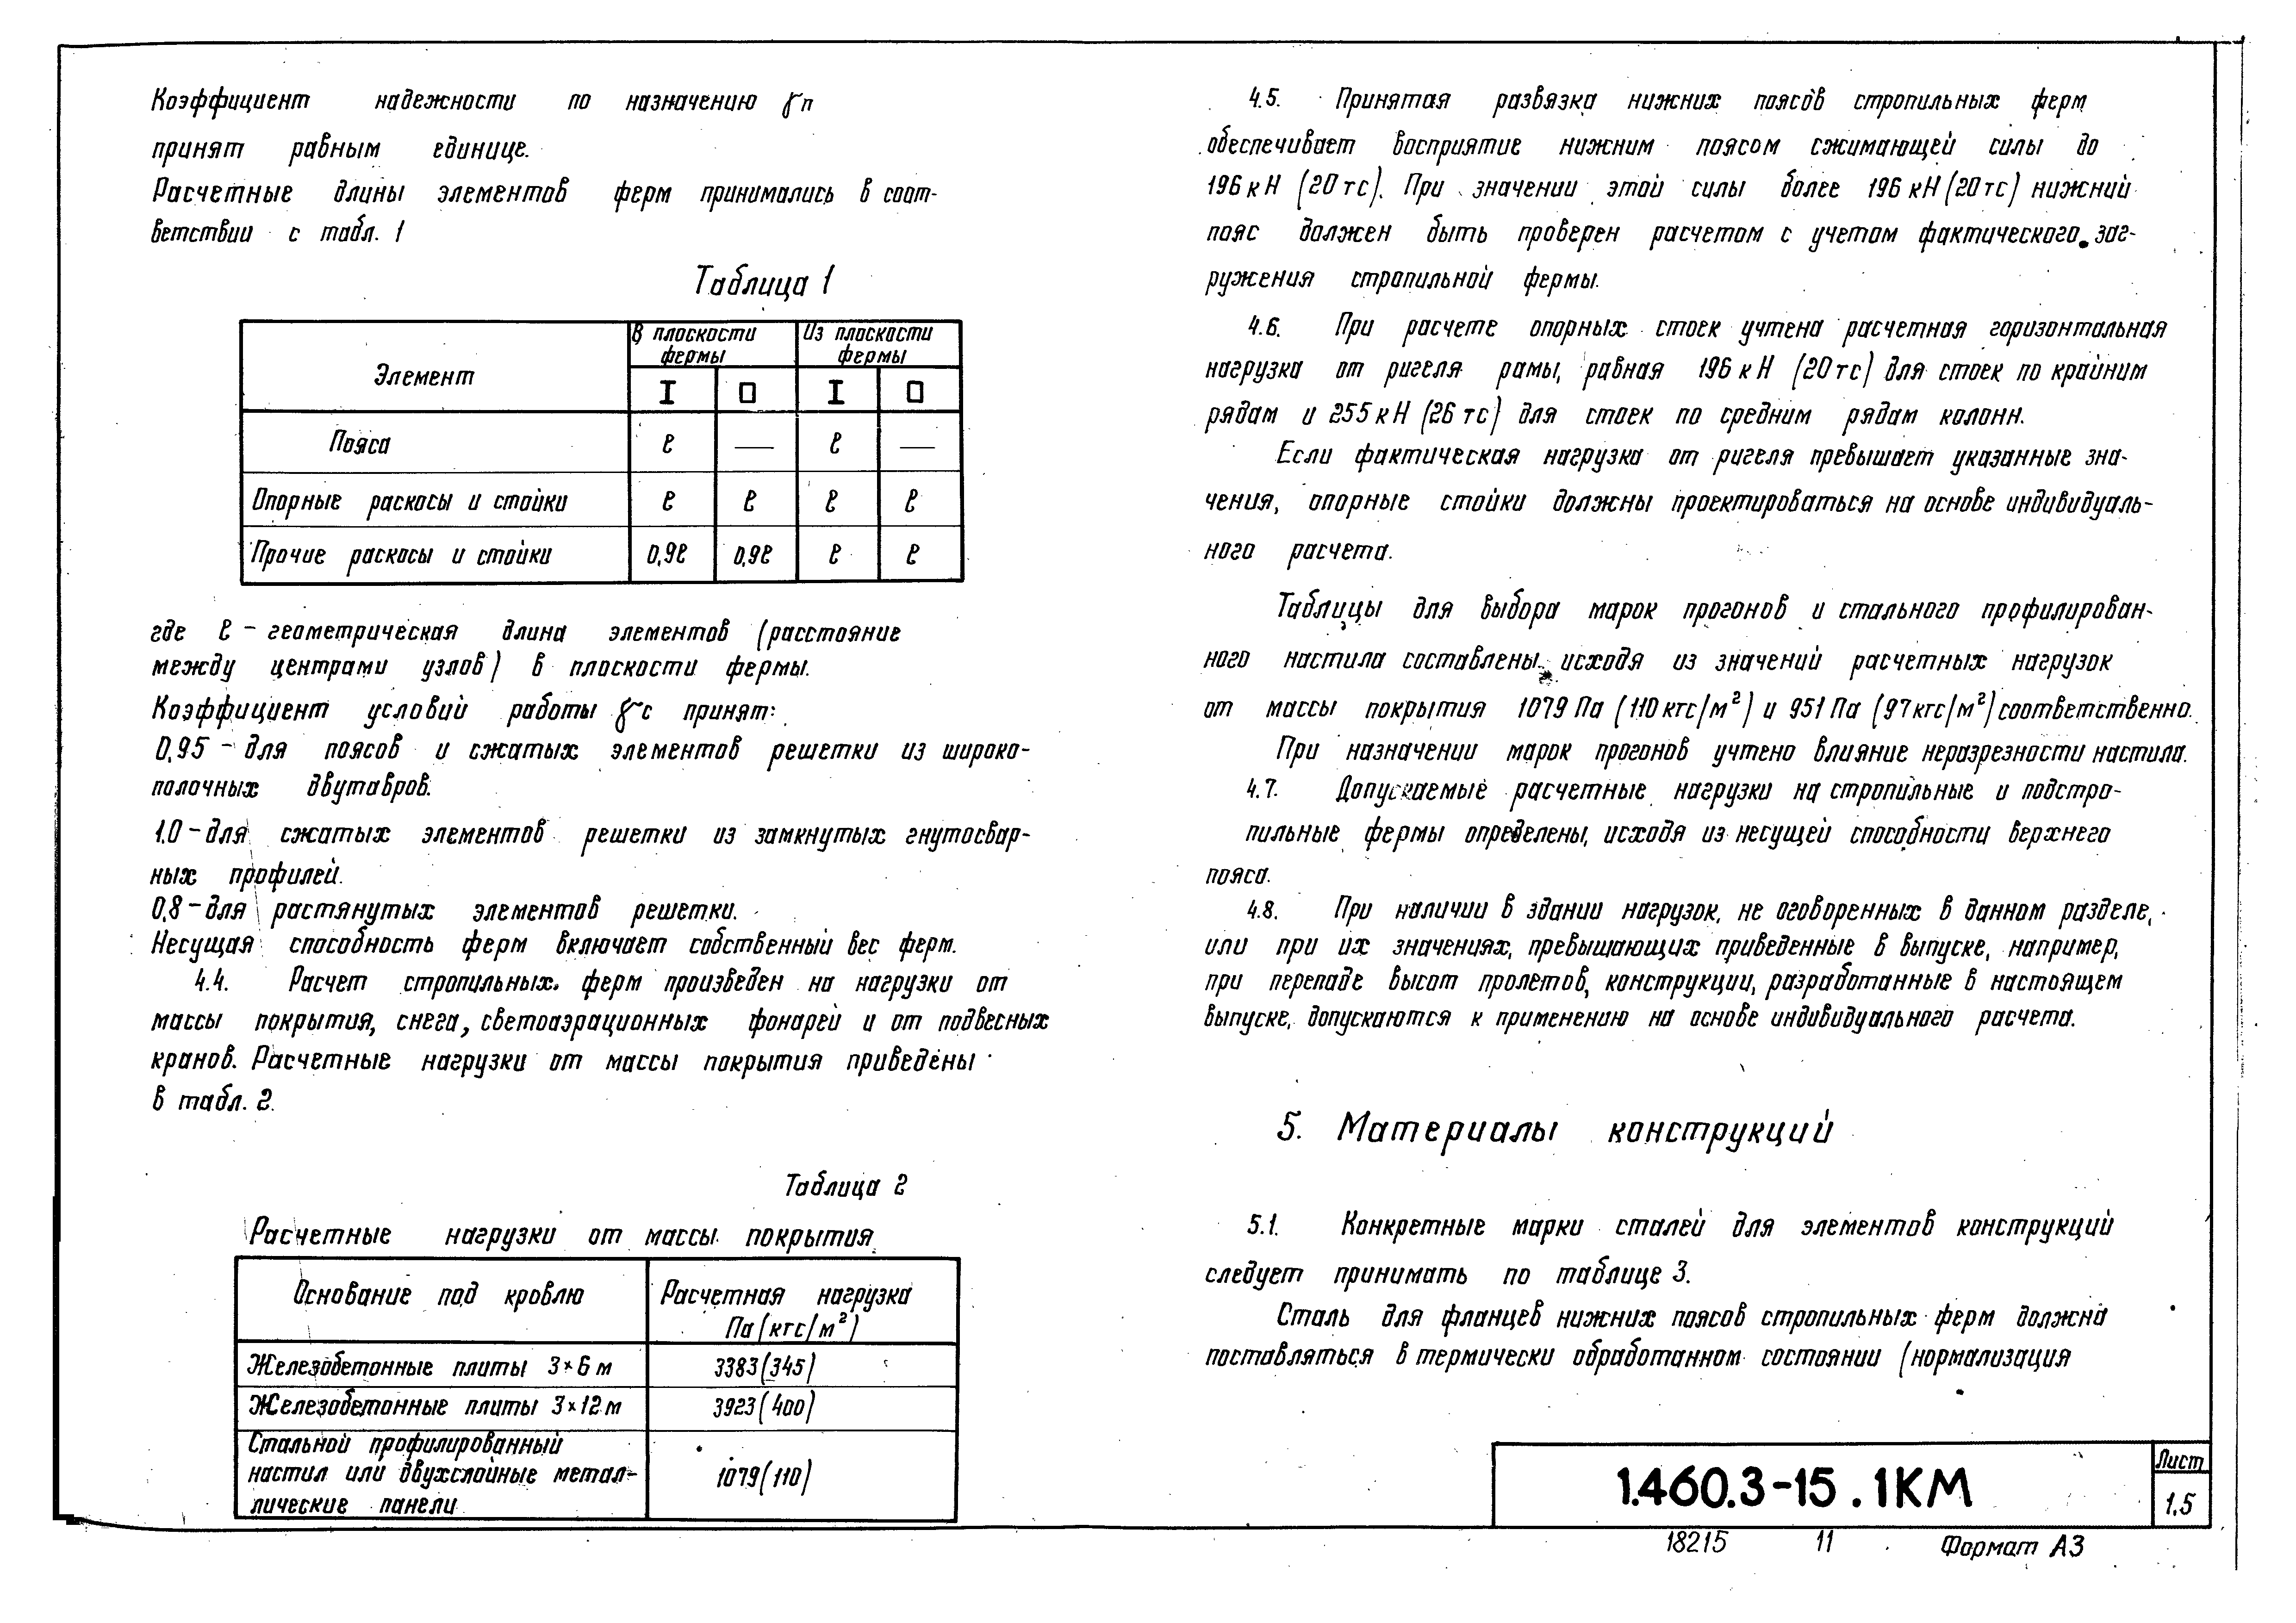 Коэффициент надежности по назначению γп
принят равным единице.
Расчетные длины элементов ферм принимались в соот-
ветствии с табл. 1
Таблица 1
Элемент
В плоскости фермы
Из плоскости фермы
I □ I □
Пояса ℓ — ℓ —
Опорные раскосы и стойки ℓ ℓ ℓ ℓ
Прочие раскосы и стойки 0,9ℓ 0,9ℓ ℓ ℓ
где ℓ - геометрическая длина элементов (расстояние
между центрами узлов) в плоскости фермы.
Коэффициент условий работы γс принят:
0,95 - для поясов и сжатых элементов решетки из широко-
полочных двутавров.
1.0 - для сжатых элементов решетки из замкнутых гнутосвар-
ных профилей.
0,8 - для растянутых элементов решетки.
Несущая способность ферм включает собственный вес ферм.
4.4. Расчет стропильных ферм произведен на нагрузки от
массы покрытия, снега, светоаэрационных фонарей и от подвесных
кранов. Расчетные нагрузки от массы покрытия приведены
в табл. 2.
Таблица 2
Расчетные нагрузки от массы покрытия
Основание под кровлю
Расчетная нагрузка
Па (кгс/м²)
Железобетонные плиты 3×6 м 3383 (345)
Железобетонные плиты 3×12 м 3923 (400)
Стальной профилированный
настил или двухслойные метал-
лические панели 1079 (110)
4.5. Принятая развязка нижних поясов стропильных ферм
обеспечивает восприятие нижним поясом сжимающей силы до
196 кН (20 тс). При значении этой силы более 196 кН (20 тс) нижний
пояс должен быть проверен расчетом с учетом фактического заг-
ружения стропильной фермы.
4.6. При расчете опорных стоек учтена расчетная горизонтальная
нагрузка от ригеля рамы, равная 196 кН (20 тс) для стоек по крайним
рядам и 255 кН (26 тс) для стоек по средним рядам колонн.
Если фактическая нагрузка от ригеля превышает указанные зна-
чения, опорные стойки должны проектироваться на основе индивидуаль-
ного расчета.
Таблицы для выбора марок прогонов и стального профилирован-
ного настила составлены исходя из значений расчетных нагрузок
от массы покрытия 1079 Па (110 кгс/м²) и 951 Па (97 кгс/м²) соответственно.
При назначении марок прогонов учтено влияние неразрезности настила.
4.7. Допускаемые расчетные нагрузки на стропильные и подстро-
пильные фермы определены, исходя из несущей способности верхнего
пояса.
4.8. При наличии в здании нагрузок, не оговоренных в данном разделе,
или при их значениях, превышающих приведенные в выпуске, например,
при перепаде высот пролетов, конструкции, разработанные в настоящем
выпуске, допускаются к применению на основе индивидуального расчета.
5. Материалы конструкций
5.1. Конкретные марки сталей для элементов конструкций
следует принимать по таблице 3.
Сталь для фланцев нижних поясов стропильных ферм должна
поставляться в термически обработанном состоянии (нормализация
1.460.3-15.1КМ
Лист
1.5
18215 11 Формат А3